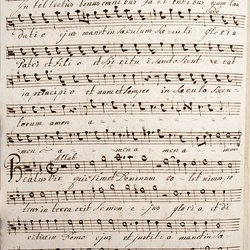 intellectus bonus omnibus facientibus eum lau
datio ejus manet in saeculum saeculi gloria
Patri et filio et spiritui sancto sicut erat
in principio et nunc et semper in saecula saecu
lorum amen a
men a men a men a men
Allab:
Beatus vir qui timet Dominum volet nimis
in terra erit semen ejus gloria et di
vitiae in Domo ejus et justitia manet in